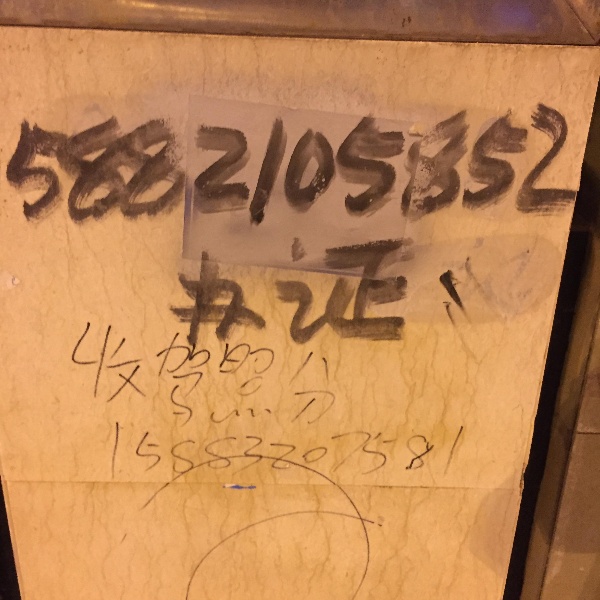 5882105852
办证
收驾照分
15883207581